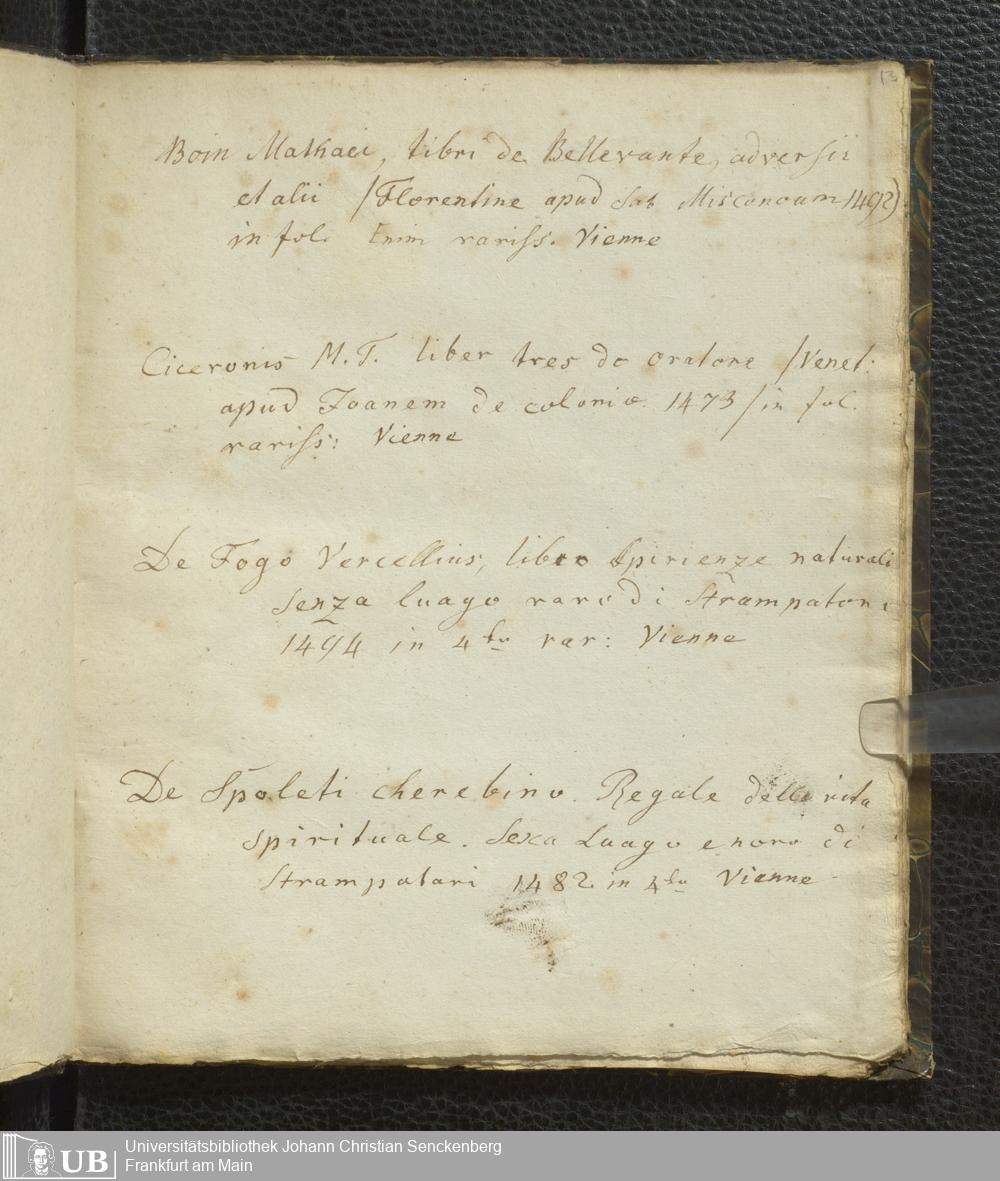 13
Boin Mathaei, libri de Bellevante, adversii
et alii /Florentine apud Sat Misconoum 1492)
in fol. Enim rariss. Vienne
Ciceronis M. T. liber tres de oratore /Venet.
apud Joanem de colonia 1473/in fol.
rariss: Vienne
De Fogo Vercellius, libro Spirienze naturali
senza luago vare di Strampatori
1494 in 4to rar: Vienne
De Spoleti cherebino. Regale della vita
spirituale. Sexa Luago e nore di
Strampatari 1482 in 4to Vienne
UB
Universitätsbibliothek Johann Christian Senckenberg
Frankfurt am Main